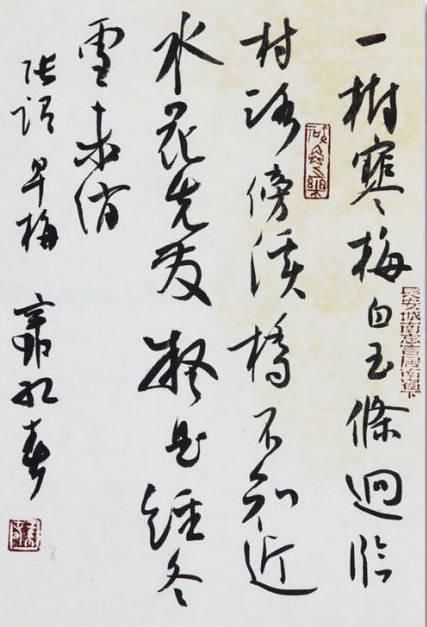 一樹寒梅白玉條迥臨
村路傍溪橋不知近
水花先發疑是經冬
雪未消
張謂早梅